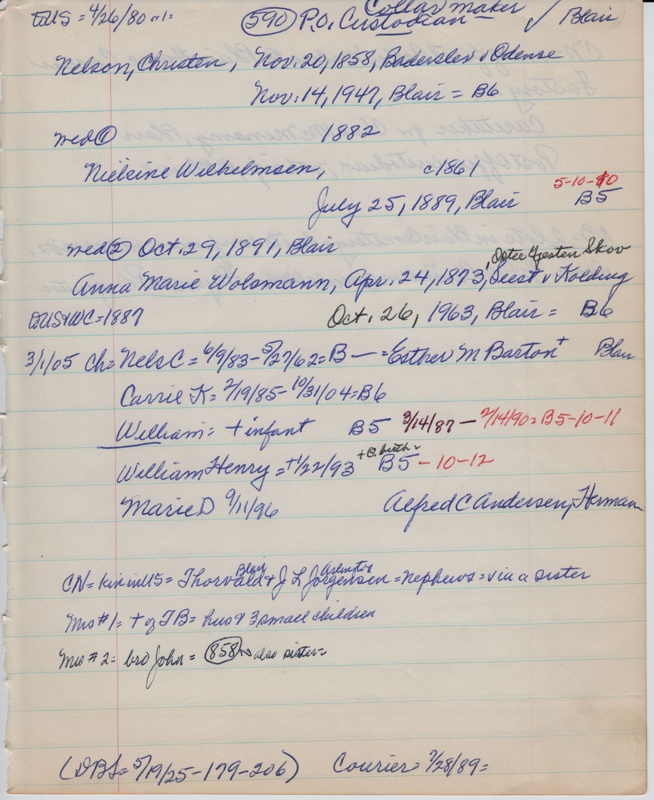 toUS = 4/26/80 or 1 = (590) P.O. Custodian Collar maker ✓ Blair
Nelson, Christen, Nov. 20, 1858, Baderslev v Odense
Nov. 14, 1947, Blair = B6
med ① 1882
Nielsine Wilhelmsen, c1861
5-10-10
July 25, 1889, Blair B5
med ② Oct. 29, 1891, Blair
Anna Marie Wolsmann, Apr. 24, 1873, Seest v Kolding
toUS & WC = 1887 Oct. 26, 1963, Blair = B6
3/1/05 Ch = Nels C = 6/9/83 - 5/27/62 = B — = Esther M Barton + Blair
Carrie K = 2/19/85 - 10/31/04 = B6
William = + infant B5 3/14/87 — 2/14/90 = B5-10-11
William Henry = +1/22/93 + @ birth B5 -10-12
Marie D 9/11/96 Alfred C Andersen, Herman
Blair
CN = kin in US = Thorvald & J L Jorgensen = nephews = via a sister
Mrs #1 = + of TB = hus & 3 small children
Mrs #2 = bro John = (858) also sister =
(DBL = 5/19/25-179-206) Courier = 7/28/89 =